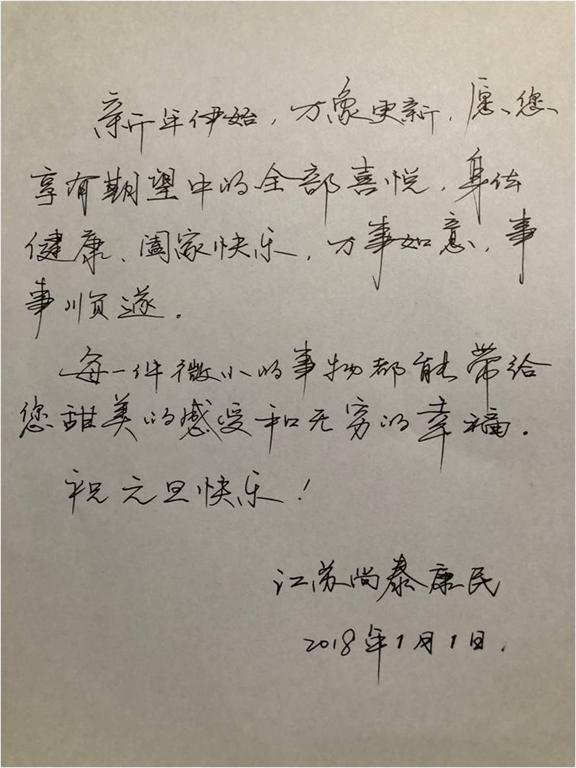 新年伊始，万象更新，愿您
享有期望中的全部喜悦，身体
健康、阖家快乐，万事如意，事
事顺遂。
每一件微小的事物都能带给
您甜美的感受和无穷的幸福。
祝元旦快乐！
江苏尚泰康民
2018年1月1日.